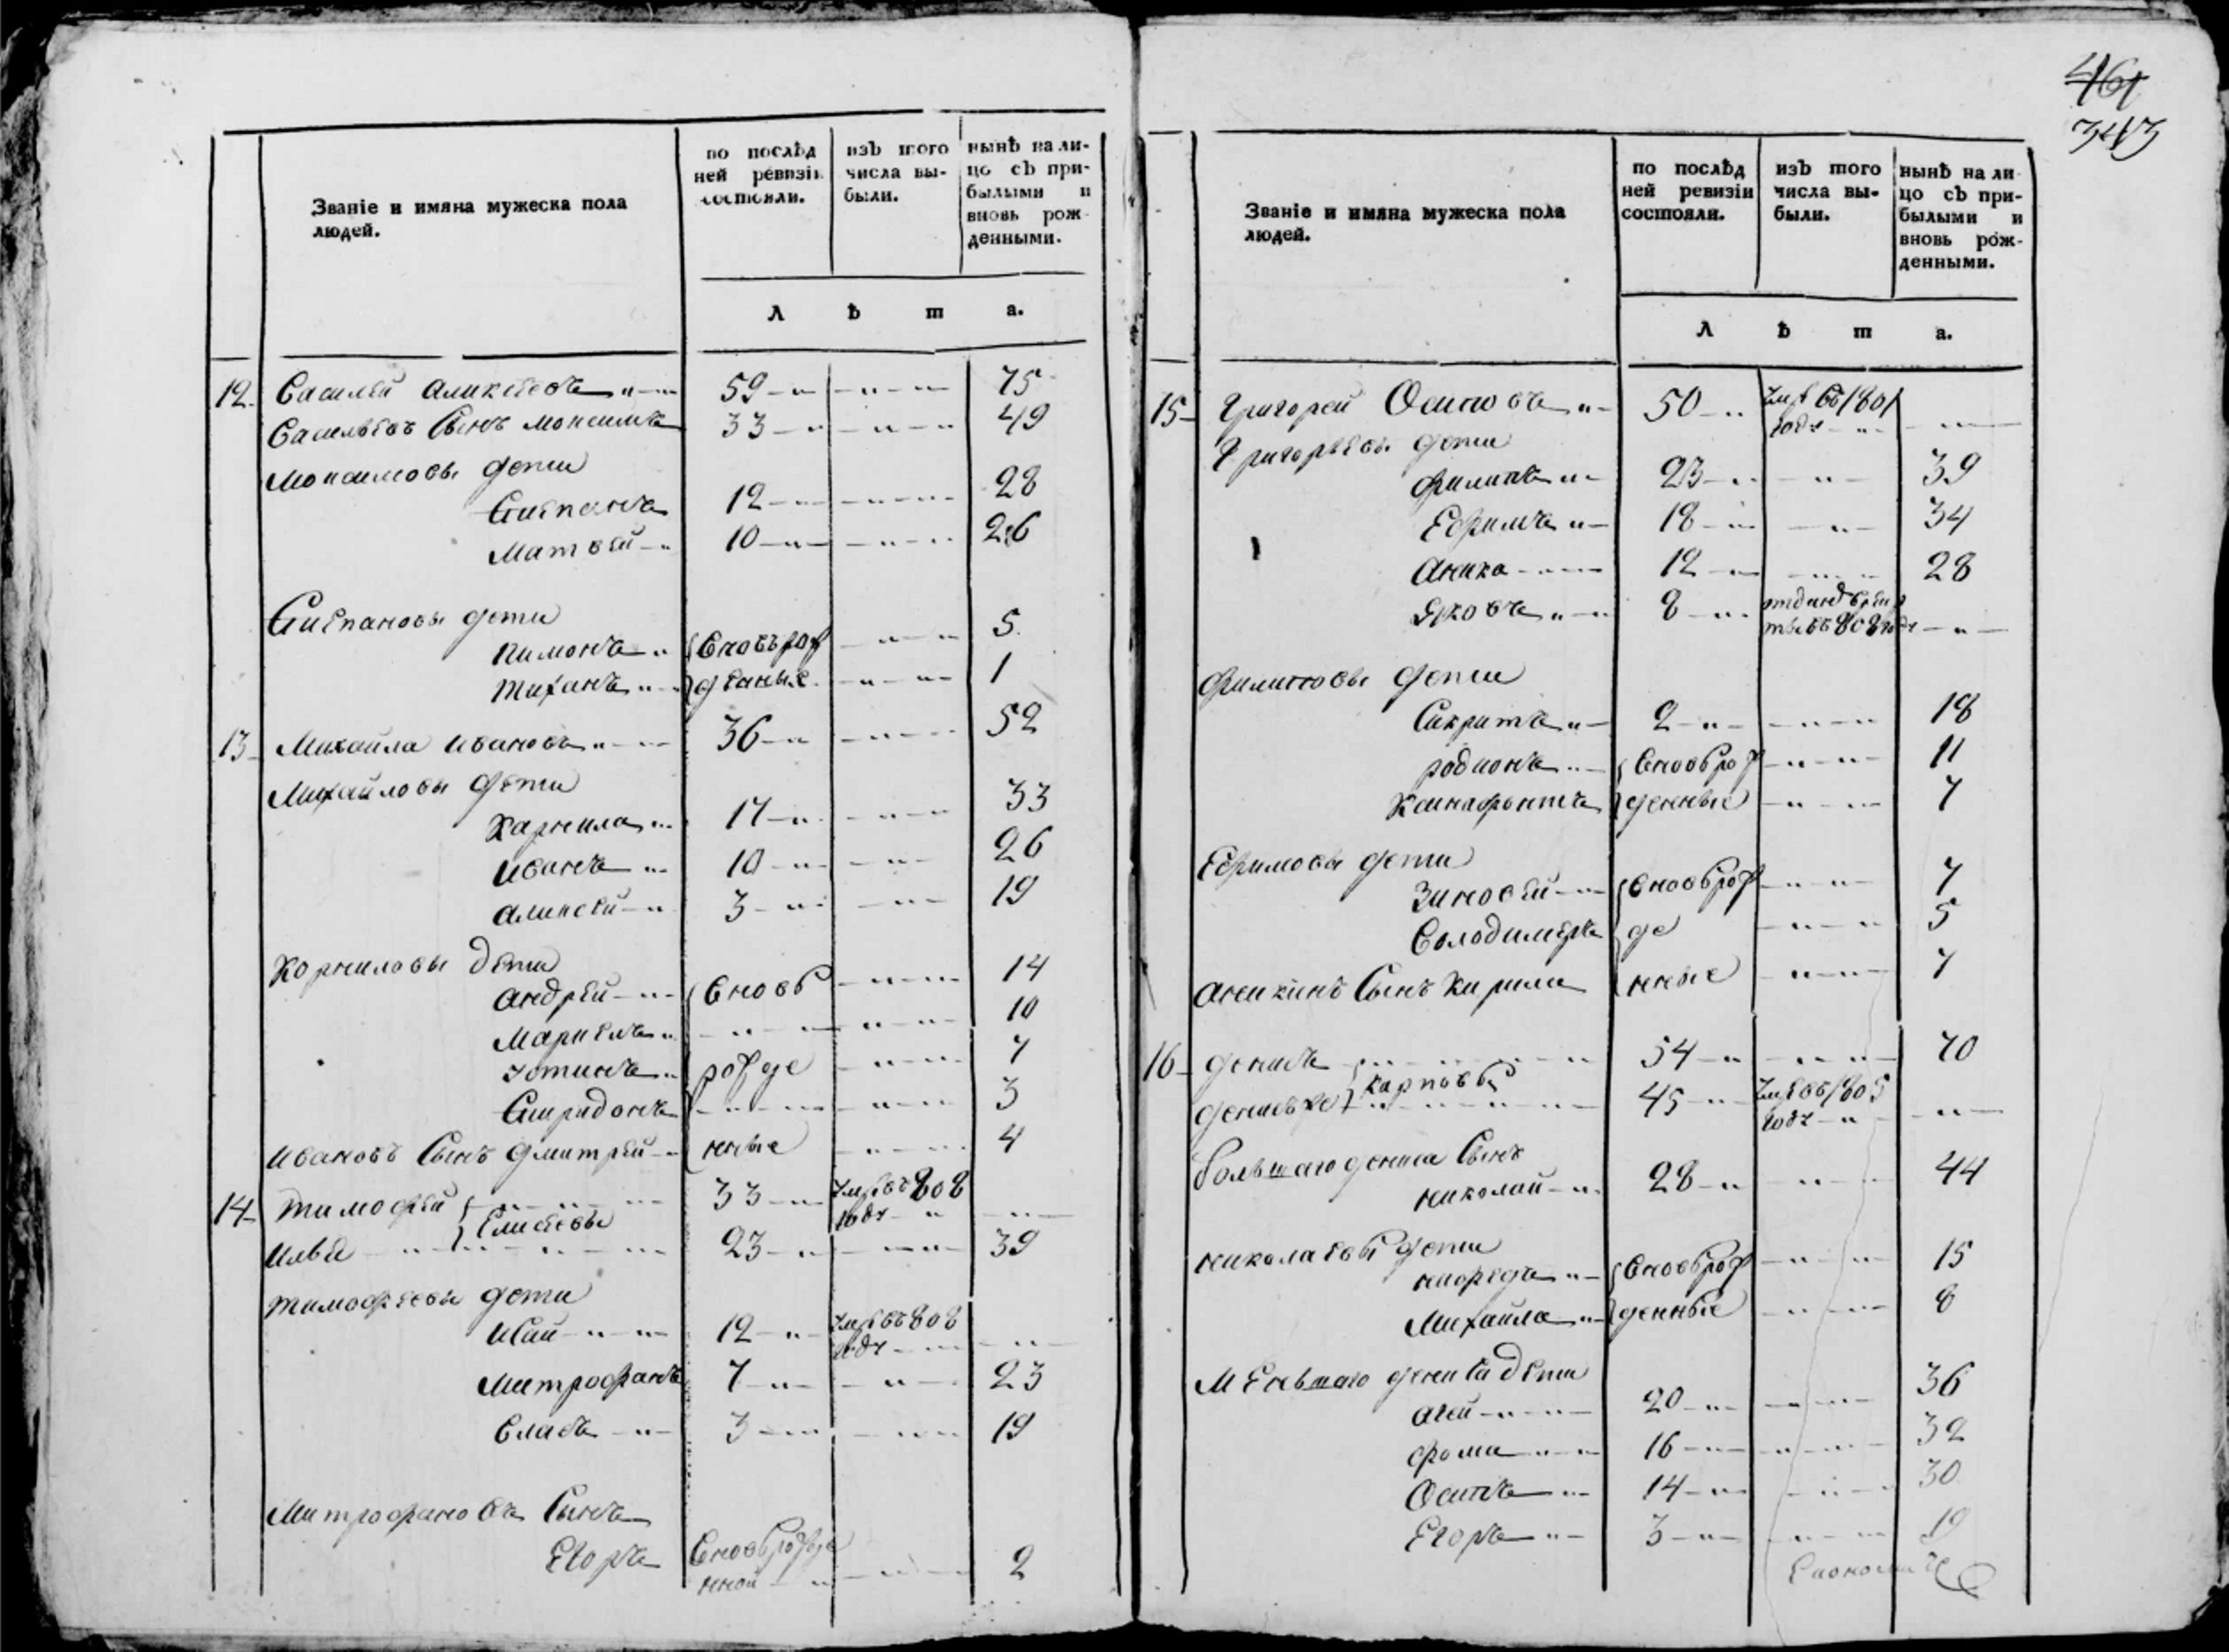 461
343
Званіе и имяна мужеска пола
людей.
по послѣд
ней ревизіи
состояли.
изъ того
числа вы-
были.
нынѣ на ли-
цо съ при-
былыми и
вновь рож-
денными.
Л ѣ т а.
12. Василей Аликсѣевъ 59 75
Васильевъ Сынъ Моксимъ 33 49
Моксимовы дети
Стиепанъ 12 28
Матвѣй 10 26
Стиепановы дети
Пимонъ вновь рож 5
Тиханъ денные 1
13 Михайла Ивановъ 36 52
Михайловы дети
Карнила 17 33
Иванъ 10 26
Аликсѣй 3 19
Корниловы дети
Андрѣй вновь 14
10
Устинъ рожде 7
Спиридонъ 3
Ивановъ Сынъ Дмитрѣй нные 4
14 Тимофѣй 33 умре въ 808
году
Елисѣевы
Илья 23 39
Тимофѣевы дети
Исай 12 умре въ 808
году
Митрофанъ 7 23
Власъ 3 19
Митрофановъ Сынъ
Егоръ вновь рожде 2
нной
Званіе и имяна мужеска пола
людей.
по послѣд
ней ревизіи
состояли.
изъ того
числа вы-
были.
нынѣ на ли-
цо съ при-
былыми и
вновь рож-
денными.
Л ѣ т а.
15 Григорей Осиповъ 50 умре въ 1801
году
Григорьевы дети
Филипъ 23 39
Ефимъ 18 34
Аника 12 28
Яковъ 8 отдан в рекр
ты въ 808 году
Филиповы дети
2 18
Родионъ вновь рож 11
Ксинафонтъ денные 7
Ефимовы дети
Зиновѣй вновь рож 7
Володимеръ де 5
Аникинъ Сынъ Кирила нные 7
16 Денисъ 54 70
Карповы
Денисъ же 45 умре въ 1805
году
Большаго Дениса Сынъ
Николай 28 44
Николаевы дети
вновь рож 15
Михайла денные 8
Меньшаго Дениса дети
Агей 20 36
Фома 16 32
Осипъ 14 30
Егоръ 3 19